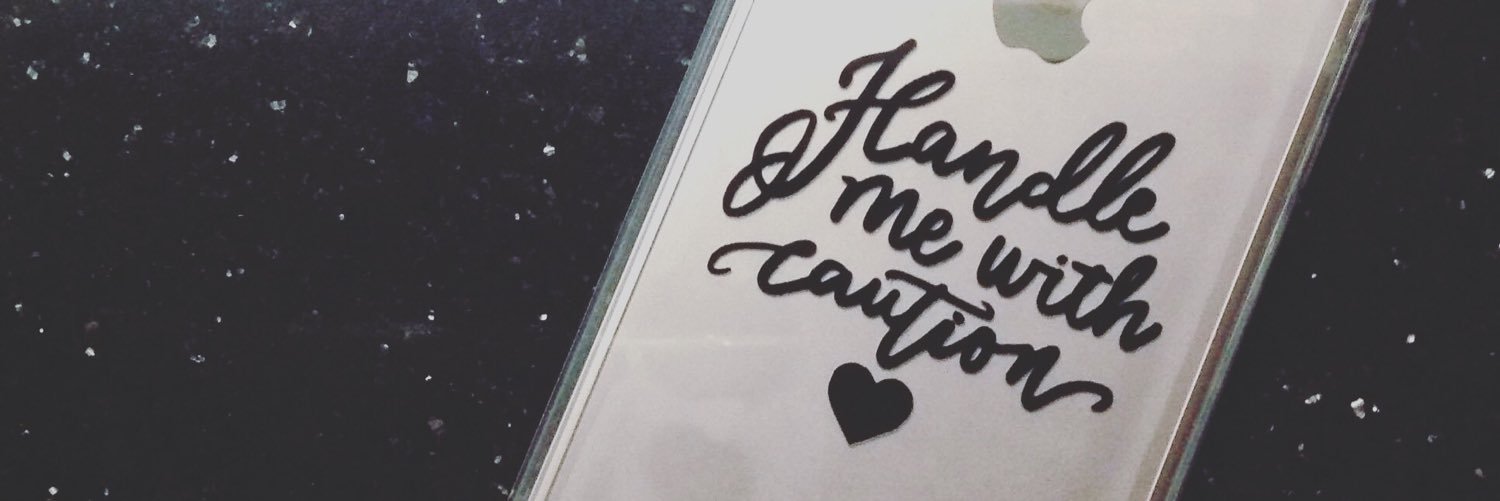 Handle
me with
caution